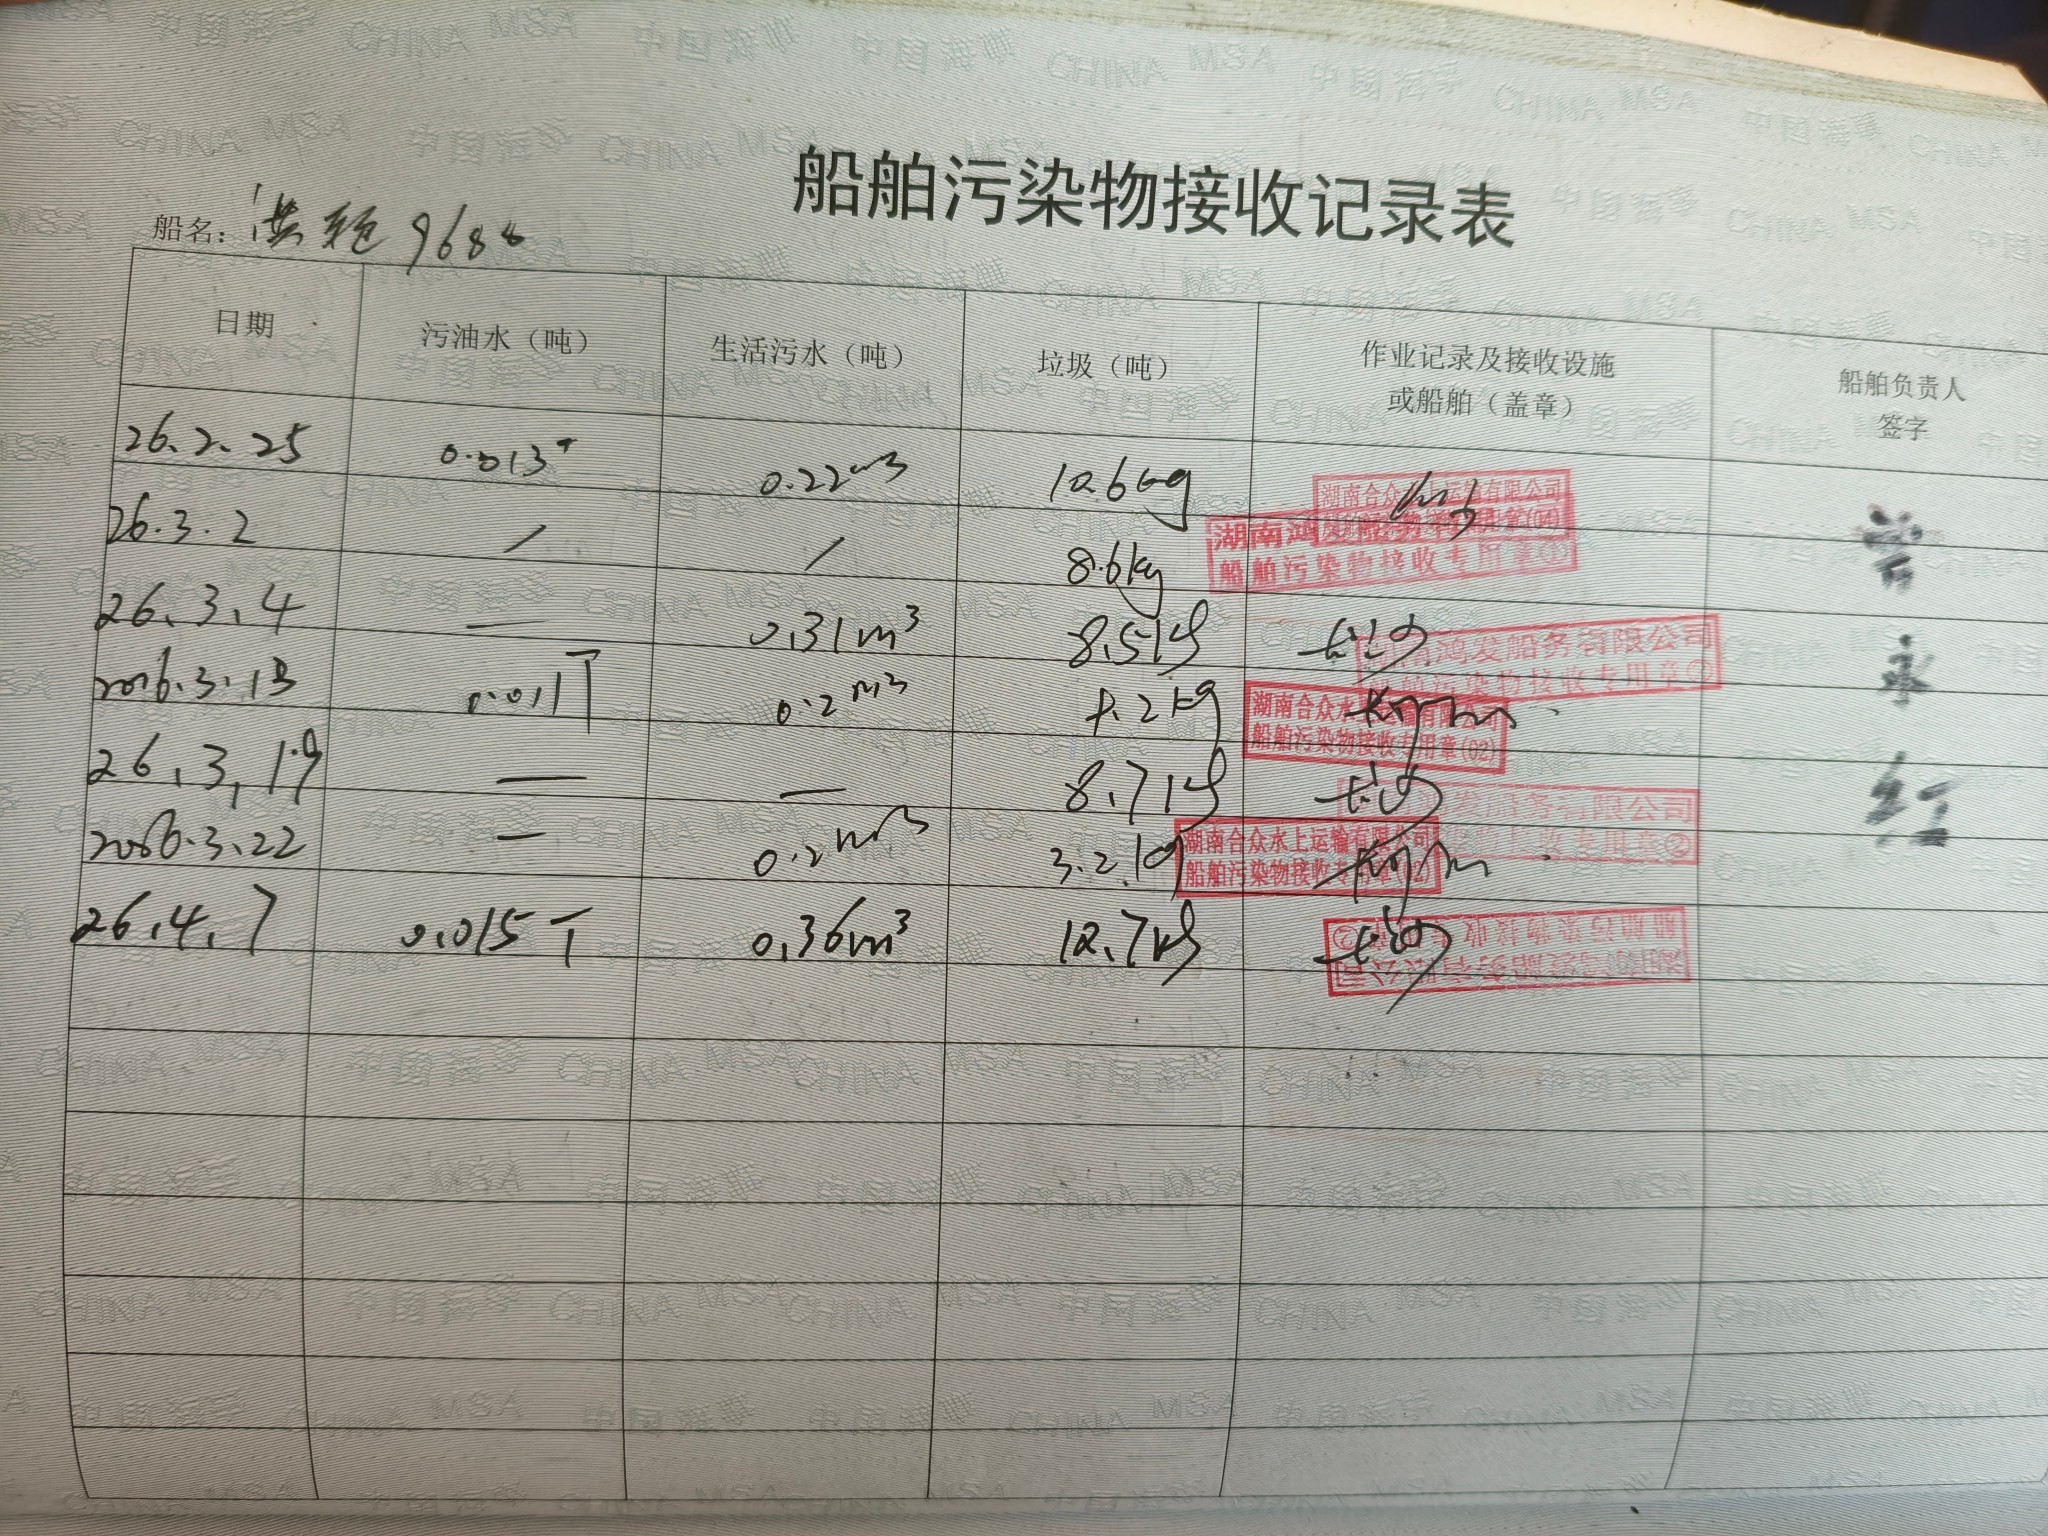 船舶污染物接收记录表
船名: 9688
日期 污油水（吨） 生活污水（吨） 垃圾（吨） 作业记录及接收设施或船舶（盖章） 船舶负责人签字
26.2.25 0.013T 0.22m3 10.6kg
湖南合众水上运输有限公司
26.3.2 / / 8.6kg
船舶污染物接收专用章①
26.3.4 — 0.31m³ 8.5kg 长沙
湖南鸿发船务有限公司
船舶污染物接收专用章①
2026.3.13 0.011T 0.2m3 8.2kg
湖南合众水上运输有限公司
船舶污染物接收专用章(02)
26.3.19 — — 8.7kg 长沙
鸿发船务有限公司
接收专用章②
2026.3.22 — 0.2m3 3.2kg
湖南合众水上运输有限公司
船舶污染物接收专用章(02)
26.4.7 0.015T 0.36m³ 12.7kg 长沙
湖南鸿发船务有限公司
船舶污染物接收专用章②
曾永红